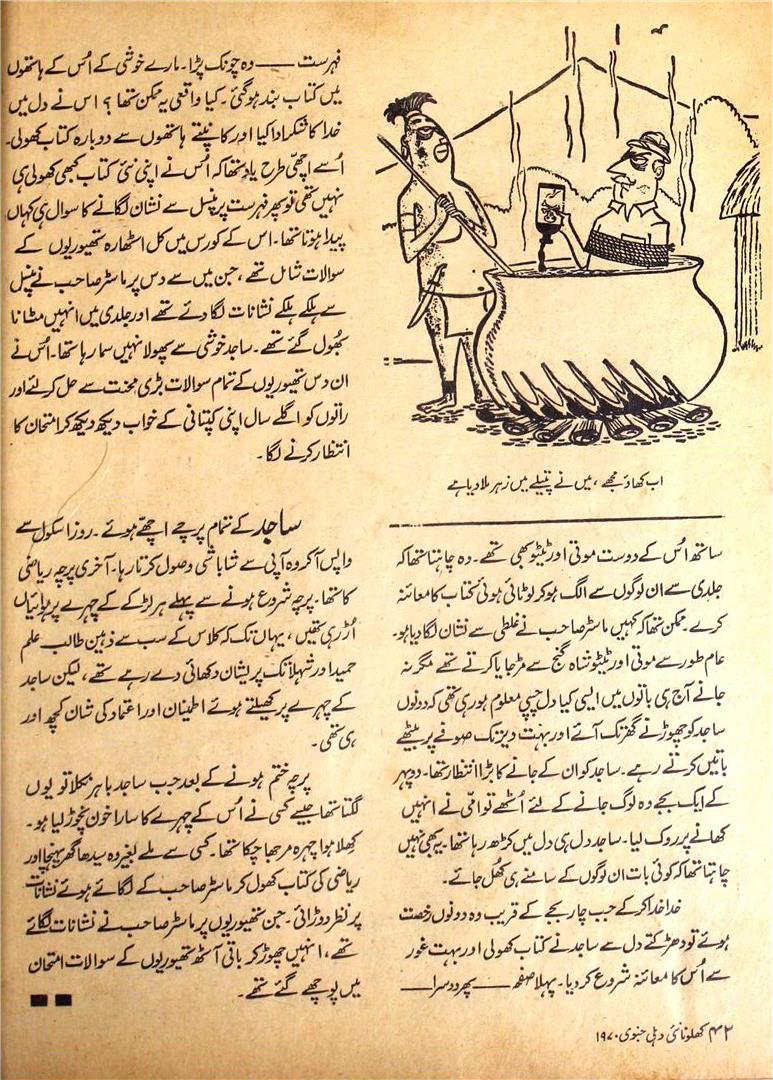 اب کھاؤ مجھے، میں نے پتیلے میں زہر ملا دیا ہے
ساتھ اُس کے دوست موتی اور ٹیٹو بھی تھے۔ وہ چاہتا تھا کہ
جلدی سے ان لوگوں سے الگ ہو کر لوٹائی ہوئی کتاب کا معائنہ
کرے۔ ممکن تھا کہ کہیں ماسٹر صاحب نے غلطی سے نشان لگا دیا ہو۔
عام طور سے موتی اور ٹیٹو شاہ گنج سے مڑ جایا کرتے تھے مگر نہ
جانے آج ہی باتوں میں ایسی کیا دل چسپی معلوم ہو رہی تھی کہ دونوں
ساجد کو چھوڑنے گھر تک آئے اور بہت دیر تک صوفے پر بیٹھے
باتیں کرتے رہے۔ ساجد کو ان کے جانے کا بڑا انتظار تھا۔ دوپہر
کے ایک بجے وہ لوگ جانے کے لئے اُٹھے تو امّی نے انہیں
کھانے پر روک لیا۔ ساجد دل ہی دل میں کڑھ رہا تھا۔ یہ بھی نہیں
چاہتا تھا کہ کوئی بات ان لوگوں کے سامنے ہی کھُل جائے۔
خدا خدا کر کے جب چار بجے کے قریب وہ دونوں رخصت
ہوئے تو دھڑکتے دل سے ساجد نے کتاب کھولی اور بہت غور
سے اُس کا معائنہ شروع کر دیا۔ پہلا صفحہ — پھر دوسرا —
فہرست — وہ چونک پڑا۔ مارے خوشی کے اُس کے ہاتھوں
میں کتاب بند ہو گئی۔ کیا واقعی یہ ممکن تھا؟ اس نے دل میں
خدا کا شکر ادا کیا اور کانپتے ہاتھوں سے دوبارہ کتاب کھولی۔
اُسے اچھی طرح یاد تھا کہ اُس نے اپنی نئی کتاب کبھی کھولی ہی
نہیں تھی تو پھر فہرست پر پنسل سے نشان لگانے کا سوال ہی کہاں
پیدا ہوتا تھا۔ اس کے کورس میں کل اٹھارہ تھیوریوں کے
سوالات شامل تھے، جن میں سے دس پر ماسٹر صاحب نے پنسل
سے ہلکے ہلکے نشانات لگا دئے تھے اور جلدی میں انہیں مٹانا
بھُول گئے تھے۔ ساجد خوشی سے پھولا نہیں سما رہا تھا۔ اُس نے
ان دس تھیوریوں کے تمام سوالات بڑی محنت سے حل کر لئے اور
راتوں کو اگلے سال اپنی کپتانی کے خواب دیکھ دیکھ کر امتحان کا
انتظار کرنے لگا۔
ساجد کے تمام پرچے اچھّے ہوئے۔ روز اسکول سے
واپس آ کر وہ آپی سے شاباشی وصول کرتا رہا۔ آخری پرچہ ریاضی
کا تھا۔ پرچہ شروع ہونے سے پہلے ہر لڑکے کے چہرے پر ہوائیاں
اُڑ رہی تھیں، یہاں تک کہ کلاس کے سب سے ذہین طالب علم
حمید اور شہلا تک پریشان دکھائی دے رہے تھے، لیکن ساجد
کے چہرے پر کھیلتے ہوئے اطمینان اور اعتماد کی شان کچھ اور
ہی تھی۔
پرچہ ختم ہونے کے بعد جب ساجد باہر نکلا تو یوں
لگتا تھا جیسے کسی نے اُس کے چہرے کا سارا خون نچوڑ لیا ہو۔
کھِلا ہوا چہرہ مرجھا چکا تھا۔ کسی سے ملے بغیر وہ سیدھا گھر پہنچا اور
ریاضی کی کتاب کھول کر ماسٹر صاحب کے لگائے ہوئے نشانات
پر نظر دوڑائی۔ جن تھیوریوں پر ماسٹر صاحب نے نشانات لگائے
تھے، انہیں چھوڑ کر باقی آٹھ تھیوریوں کے سوالات امتحان
میں پوچھے گئے تھے۔
۴۲ کھلونا نئی دہلی جنوری ۱۹۷۰